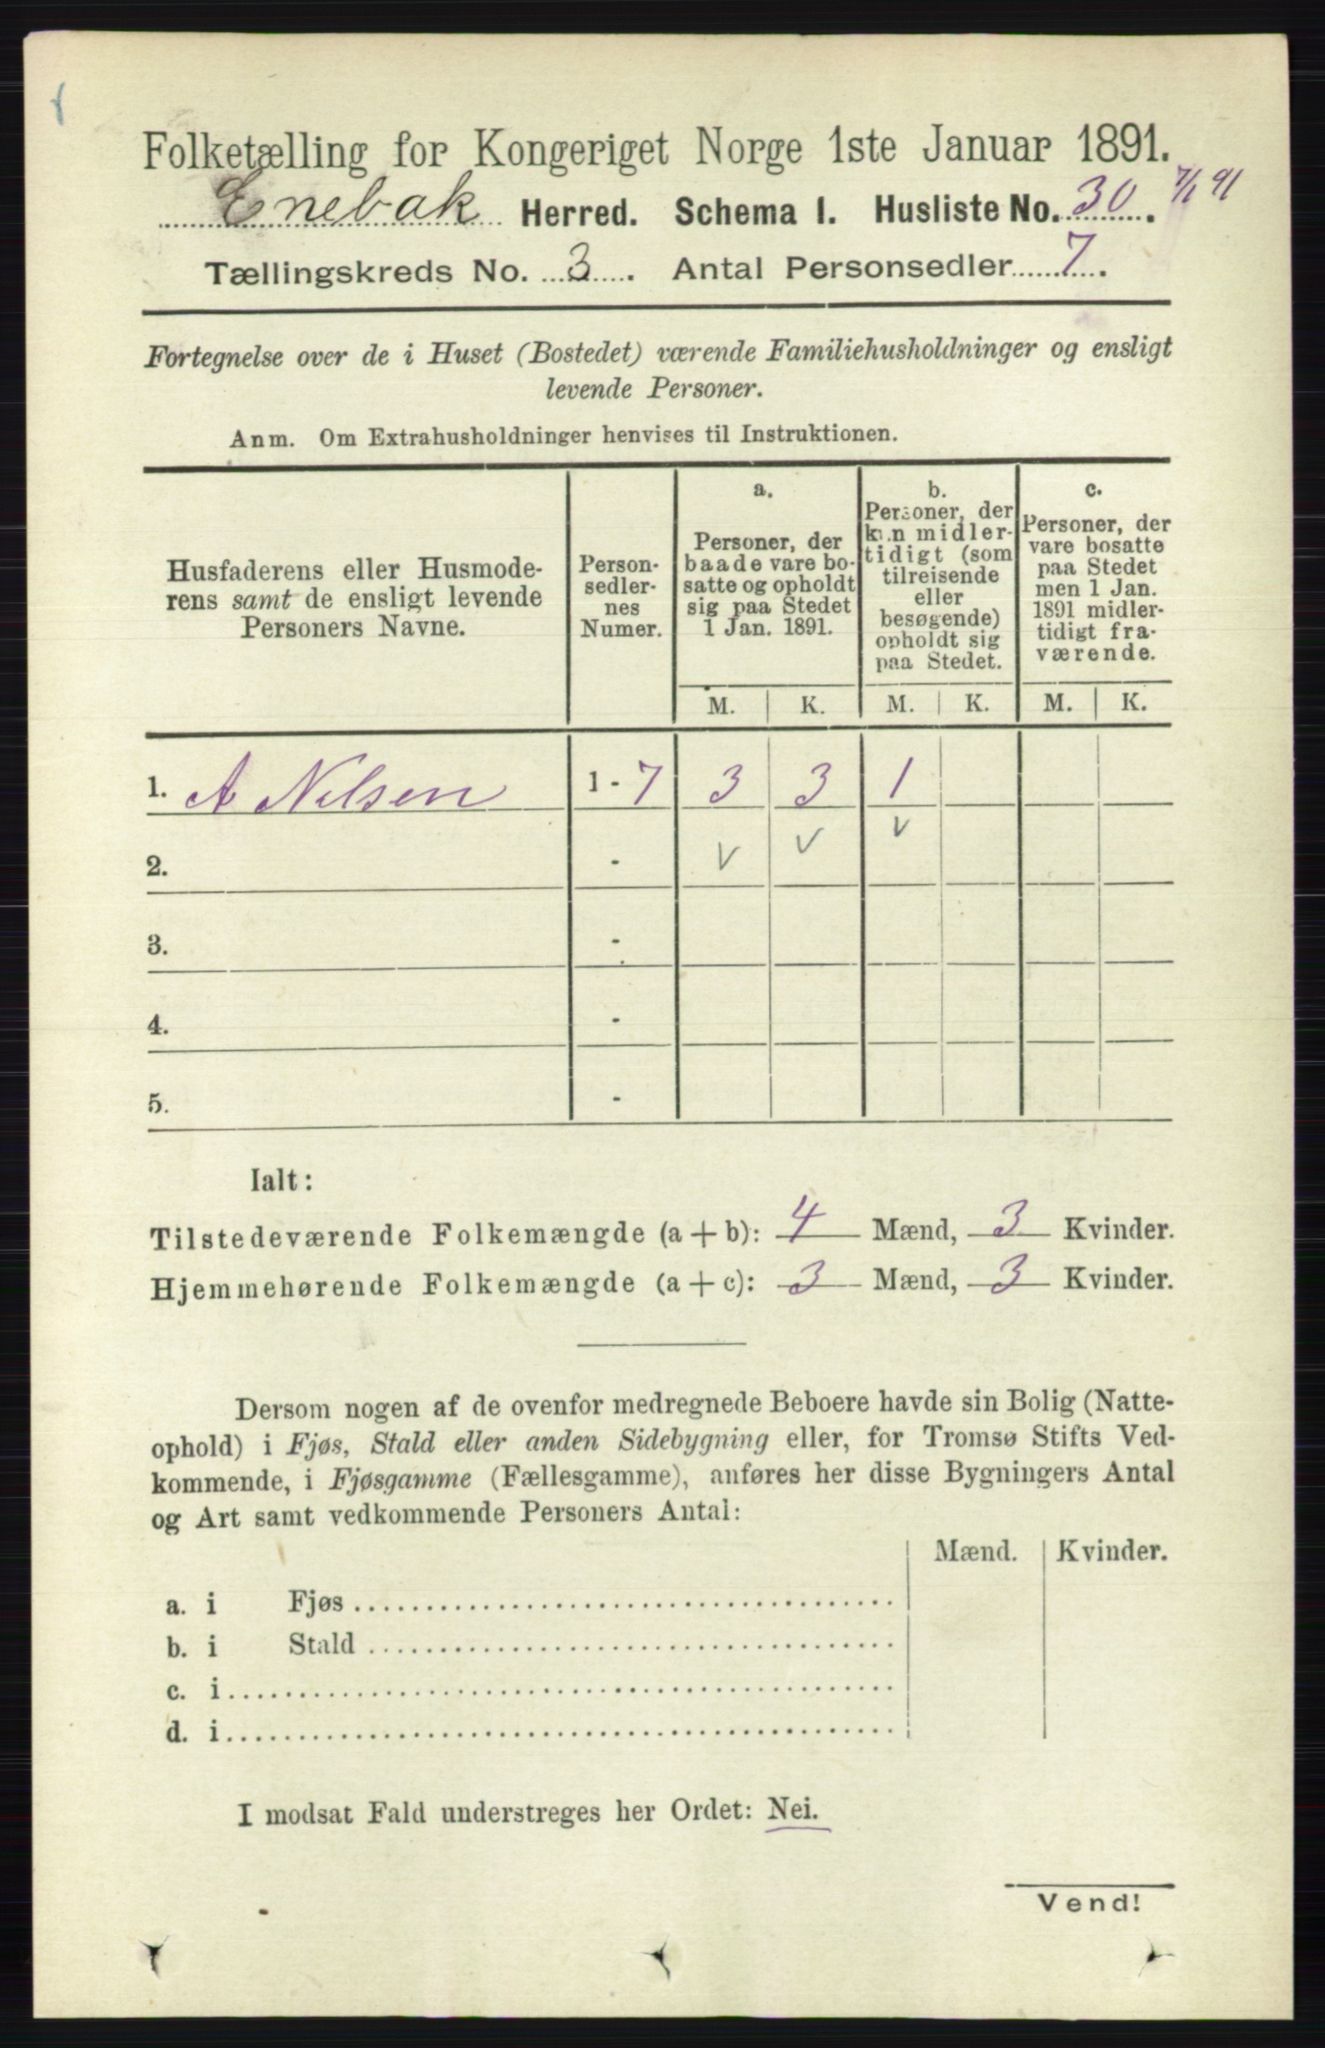 Folketælling for Kongeriget Norge 1ste Januar 1891.
Enebak Herred. Schema 1. Husliste No. 30. 7/1 91
Tællingskreds No. 3. Antal Personsedler 7.
Fortegnelse over de i Huset (Bostedet) værende Familiehusholdninger og ensligt
levende Personer.
Anm. Om Extrahusholdninger henvises til Instruktionen.
Husfaderens eller Husmode-
rens samt de ensligt levende
Personers Navne.
Person-
sedler-
nes
Numer.
a.
Personer, der
baade vare bo-
satte og opholdt
sig paa Stedet
1 Jan. 1891.
b.
Personer, der
kun midler-
tidigt (som
tilreisende
eller
besøgende)
opholdt sig
paa Stedet.
c.
Personer, der
vare bosatte
paa Stedet
men 1 Jan.
1891 midler-
tidigt fra-
værende.
M. K. M. K. M. K.
1. A Nilsen 1 - 7 3 3 1
2. - v v v
3. -
4. -
5. -
Ialt:
Tilstedeværende Folkemængde (a + b): 4 Mænd, 3 Kvinder.
Hjemmehørende Folkemængde (a + c): 3 Mænd, 3 Kvinder.
Dersom nogen af de ovenfor medregnede Beboere havde sin Bolig (Natte-
ophold) i Fjøs, Stald eller anden Sidebygning eller, for Tromsø Stifts Ved-
kommende, i Fjøsgamme (Fællesgamme), anføres her disse Bygningers Antal
og Art samt vedkommende Personers Antal:
Mænd. Kvinder.
a. i Fjøs
b. i Stald
c. i
d. i
I modsat Fald understreges her Ordet: Nei.
Vend!